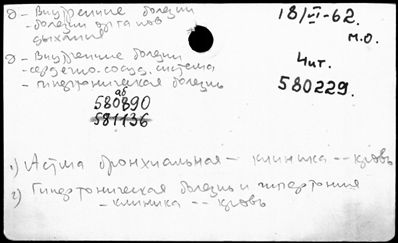 д - Внутренние болезни
- болезни органов
дыхания
д - Внутренние болезни
- сердечно-сосуд. система
- гипертоническая болезнь
аб
580890
581136
18/II-62.
М.О.
Чит.
580229.
1) Астма бронхиальная - клиника -- кровь
2) Гипертоническая болезнь и гипертония
- клиника -- кровь